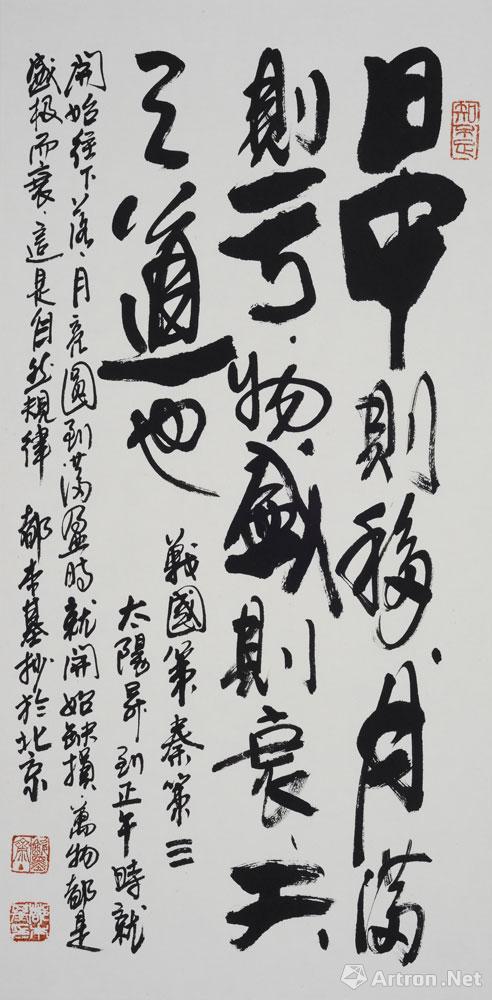 日中則移月滿
則亏物盛則衰天
之道也
戰國策秦策三
太陽昇到正午時就
開始往下落、月亮圓到滿盈時就開始缺損、萬物都是
盛极而衰、這是自然規律 都本基抄於北京
Artron.Net